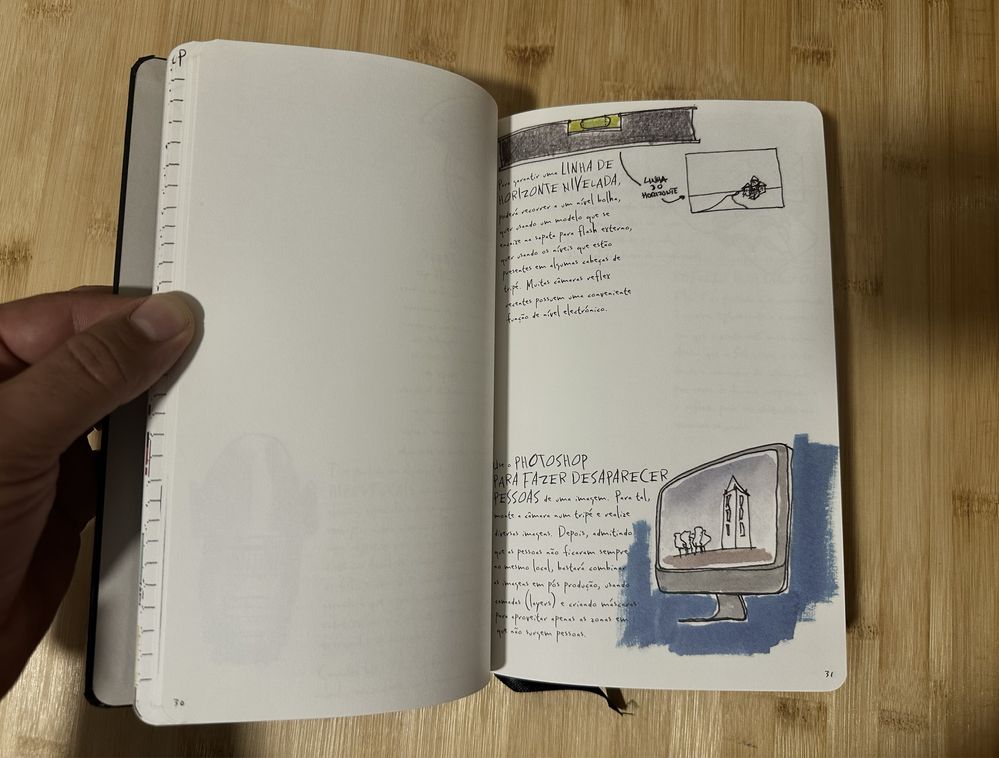 P
30
Para garantir uma LINHA DE
HORIZONTE NIVELADA,
poderá recorrer a um nível bolha,
quer usando um modelo que se
encaixe na sapata para flash externo,
quer usando os níveis que estão
presentes em algumas cabeças de
tripé. Muitas câmaras reflex
recentes possuem uma conveniente
função de nível electrónico.
LINHA
DO
HORIZONTE
Use o PHOTOSHOP
PARA FAZER DESAPARECER
PESSOAS de uma imagem. Para tal,
monte a câmara num tripé e realize
diversas imagens. Depois, admitindo
que as pessoas não ficaram sempre
no mesmo local, bastará combinar
as imagens em pós produção, usando
camadas (layers) e criando máscaras
para aproveitar apenas as zonas em
que não surgem pessoas.
31